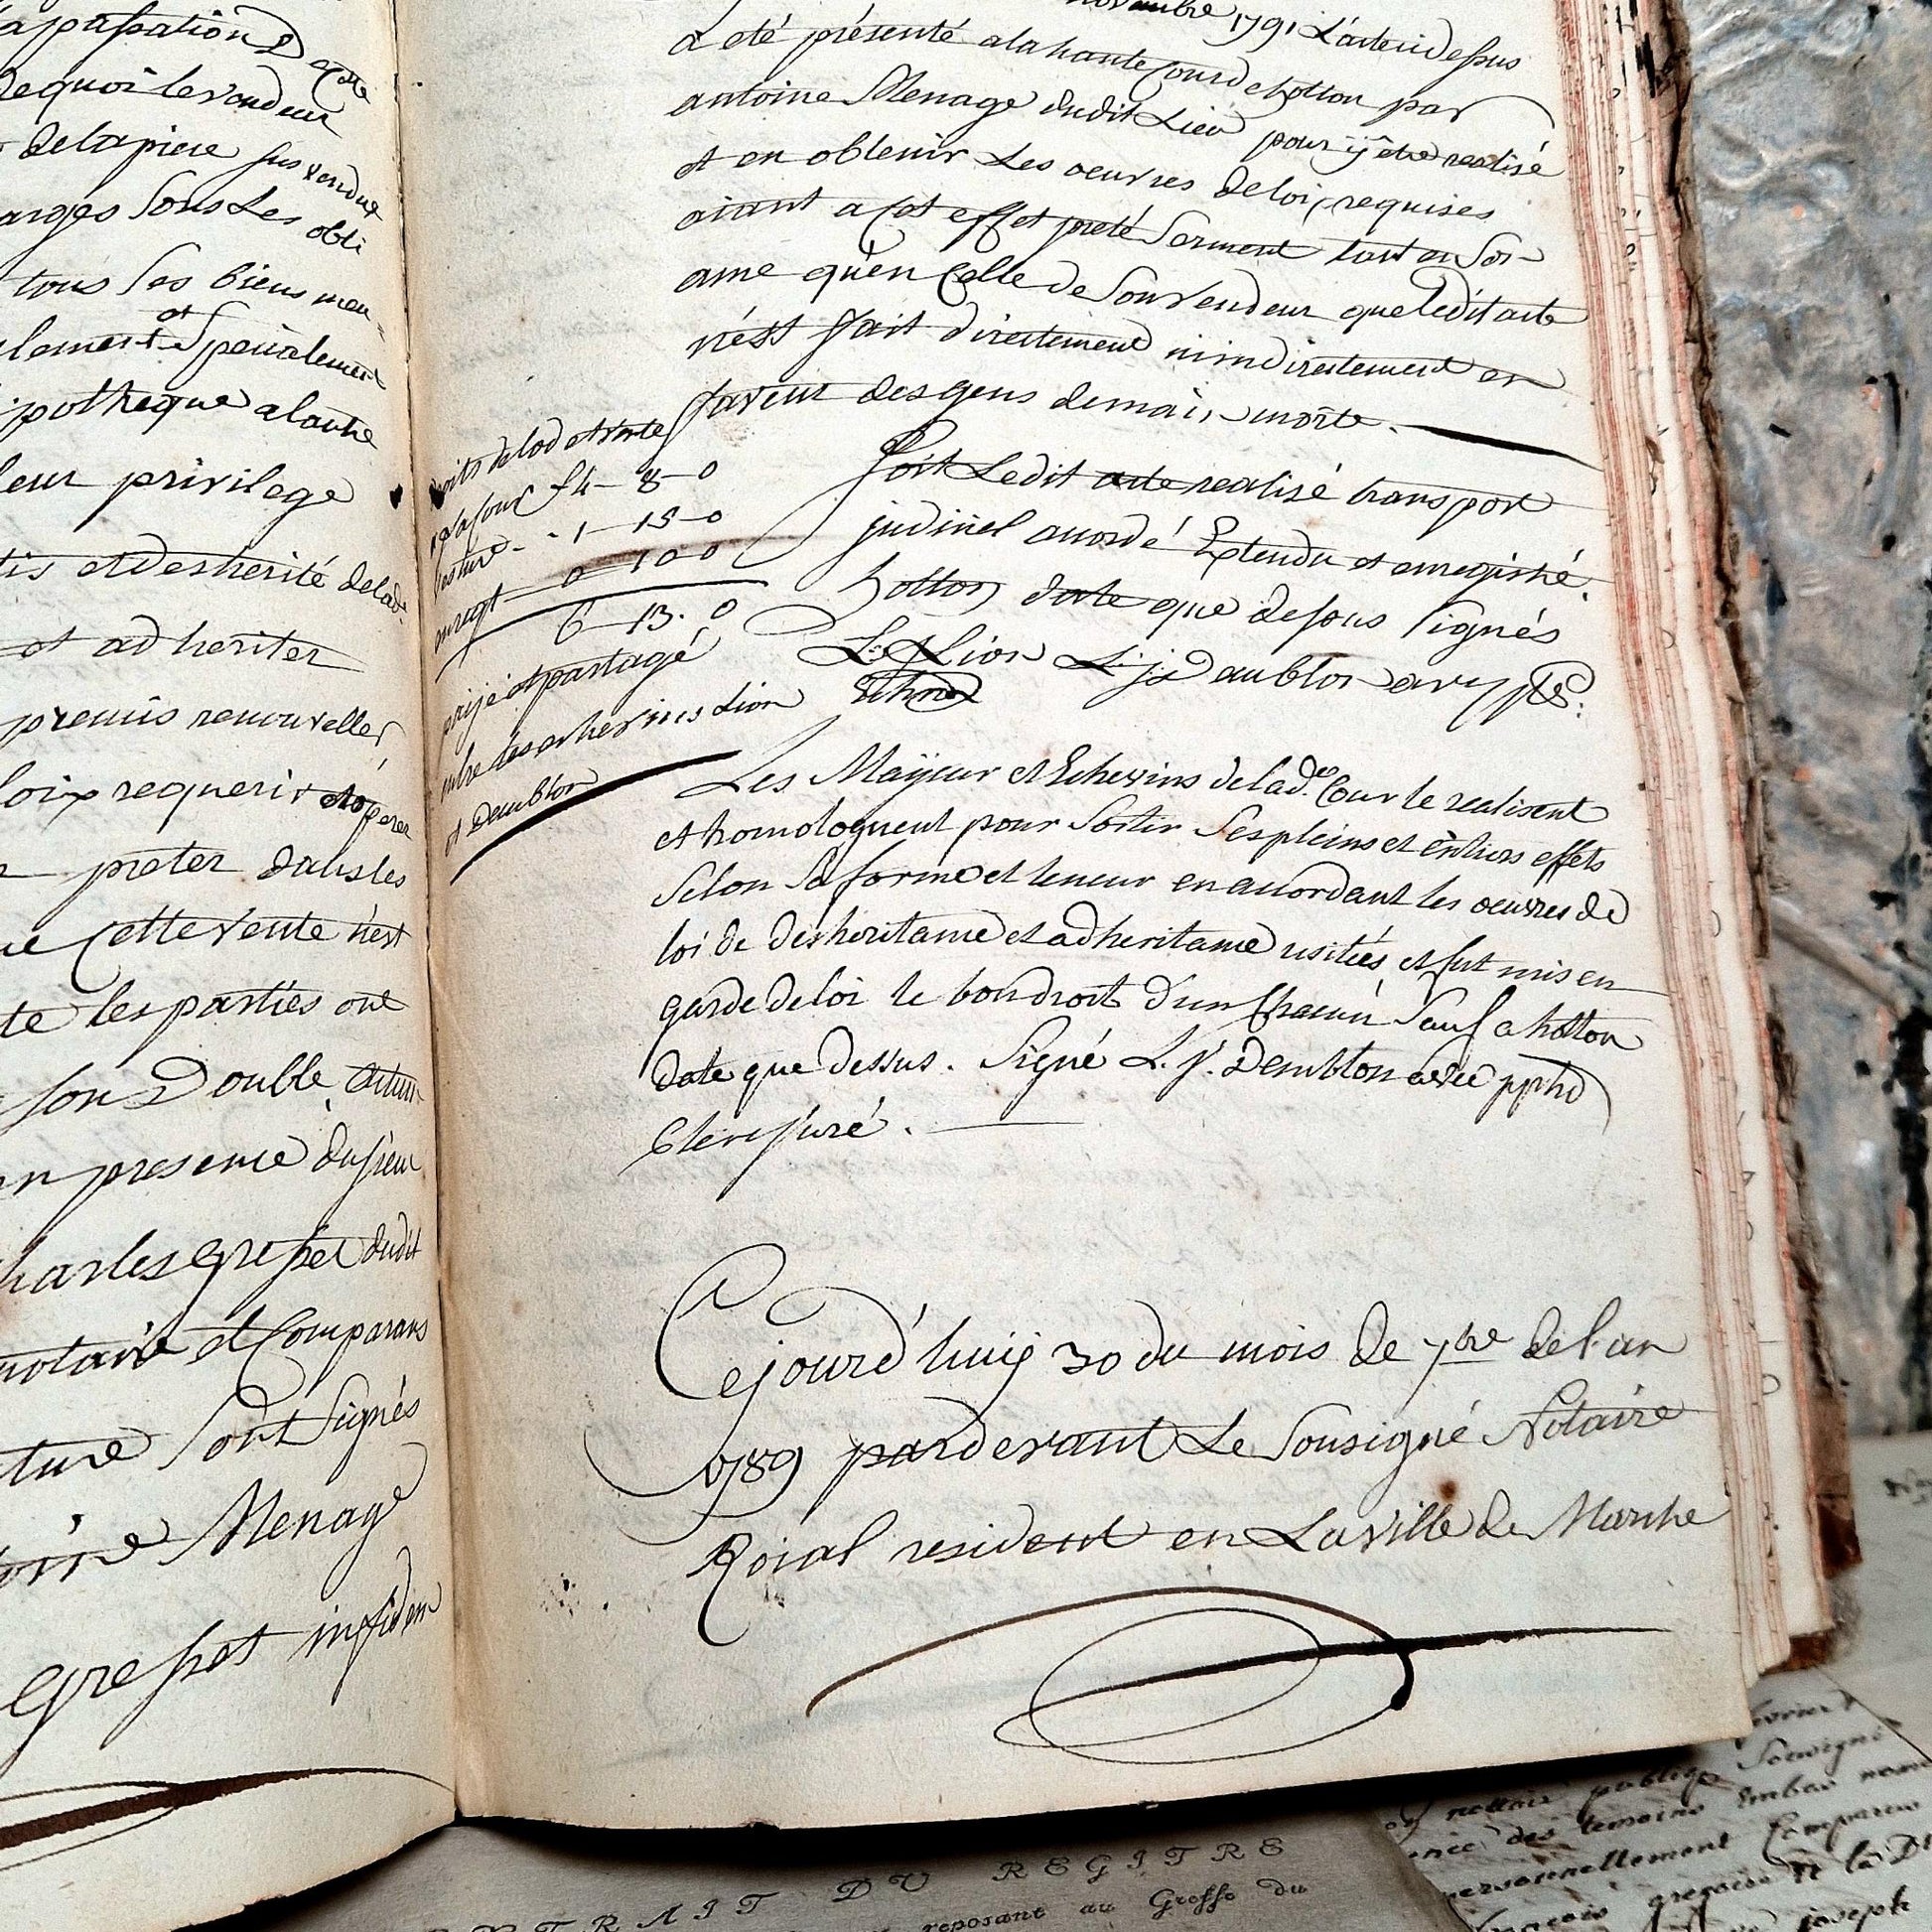 apassation D acte
dequoi le vendeur
de la piece sus vendue
arges sous Les obli
tous Ses biens meu=
lement et Specialement
ipotheque a lautre
leur privilege
tis et desherité delade
et adheriter
premis renouveller
loix requerir et operer
preter dans les
ue Cette vente n'est
te les parties ont
son Double,
en presence du sieur
harles gresset dudit
notaire et Comparans
ture sont Signés
oine Menage
gresset in fidem
novembre 1791 L'acte cidessus
a eté présenté alahaute Cour de hotton par
antoine Menage dudit Lieu pour ÿ être realisé
et en obtenir Les oeuvres de loix requises
aiant a Cet effet preté Serment tant en Son
ame qu'en Celle de Son vendeur que Ledit acte
n'est fait directement ni indirectement en
faveur des gens de main morte.
droits de lod et vente
a la Cour f 4 - 8 - 0
- 1 - 15 - 0
enregt 0 10 0
6 - 13 . 0
et partagé
entre les echevins Lion
et Demblon
Soit Ledit acte realisé transport
judiciel accordé Extendu et enregistré.
hotton date que dessus signés
L: Lion L: j: Demblon avec pphe.
Echevin
Les Maÿeur et Echevins delade Cour le realisent
et homologuent pour Sortir Ses pleins et entiers effets
Selon Sa forme et teneur en accordant les oeuvres de
loi de desheritance et adheritance usitées et fut mis en
garde de loi le bon droit d'un Chacun Sauf a hotton
date que dessus. Signé L. j. Demblon avec pphe
Clerc juré.
Cejourd'huij 30 du mois de 7bre de l'an
1789 pardevant Le Sousigné Notaire
Roial resident en La ville de Marche
EXTRAIT DU REGITRE
reposant au Greffe du
fevrier
Souvigné
nottair publiqe
ence des temoins Embas nom
personnellement Comparus
francois gregoire de la D
joseph